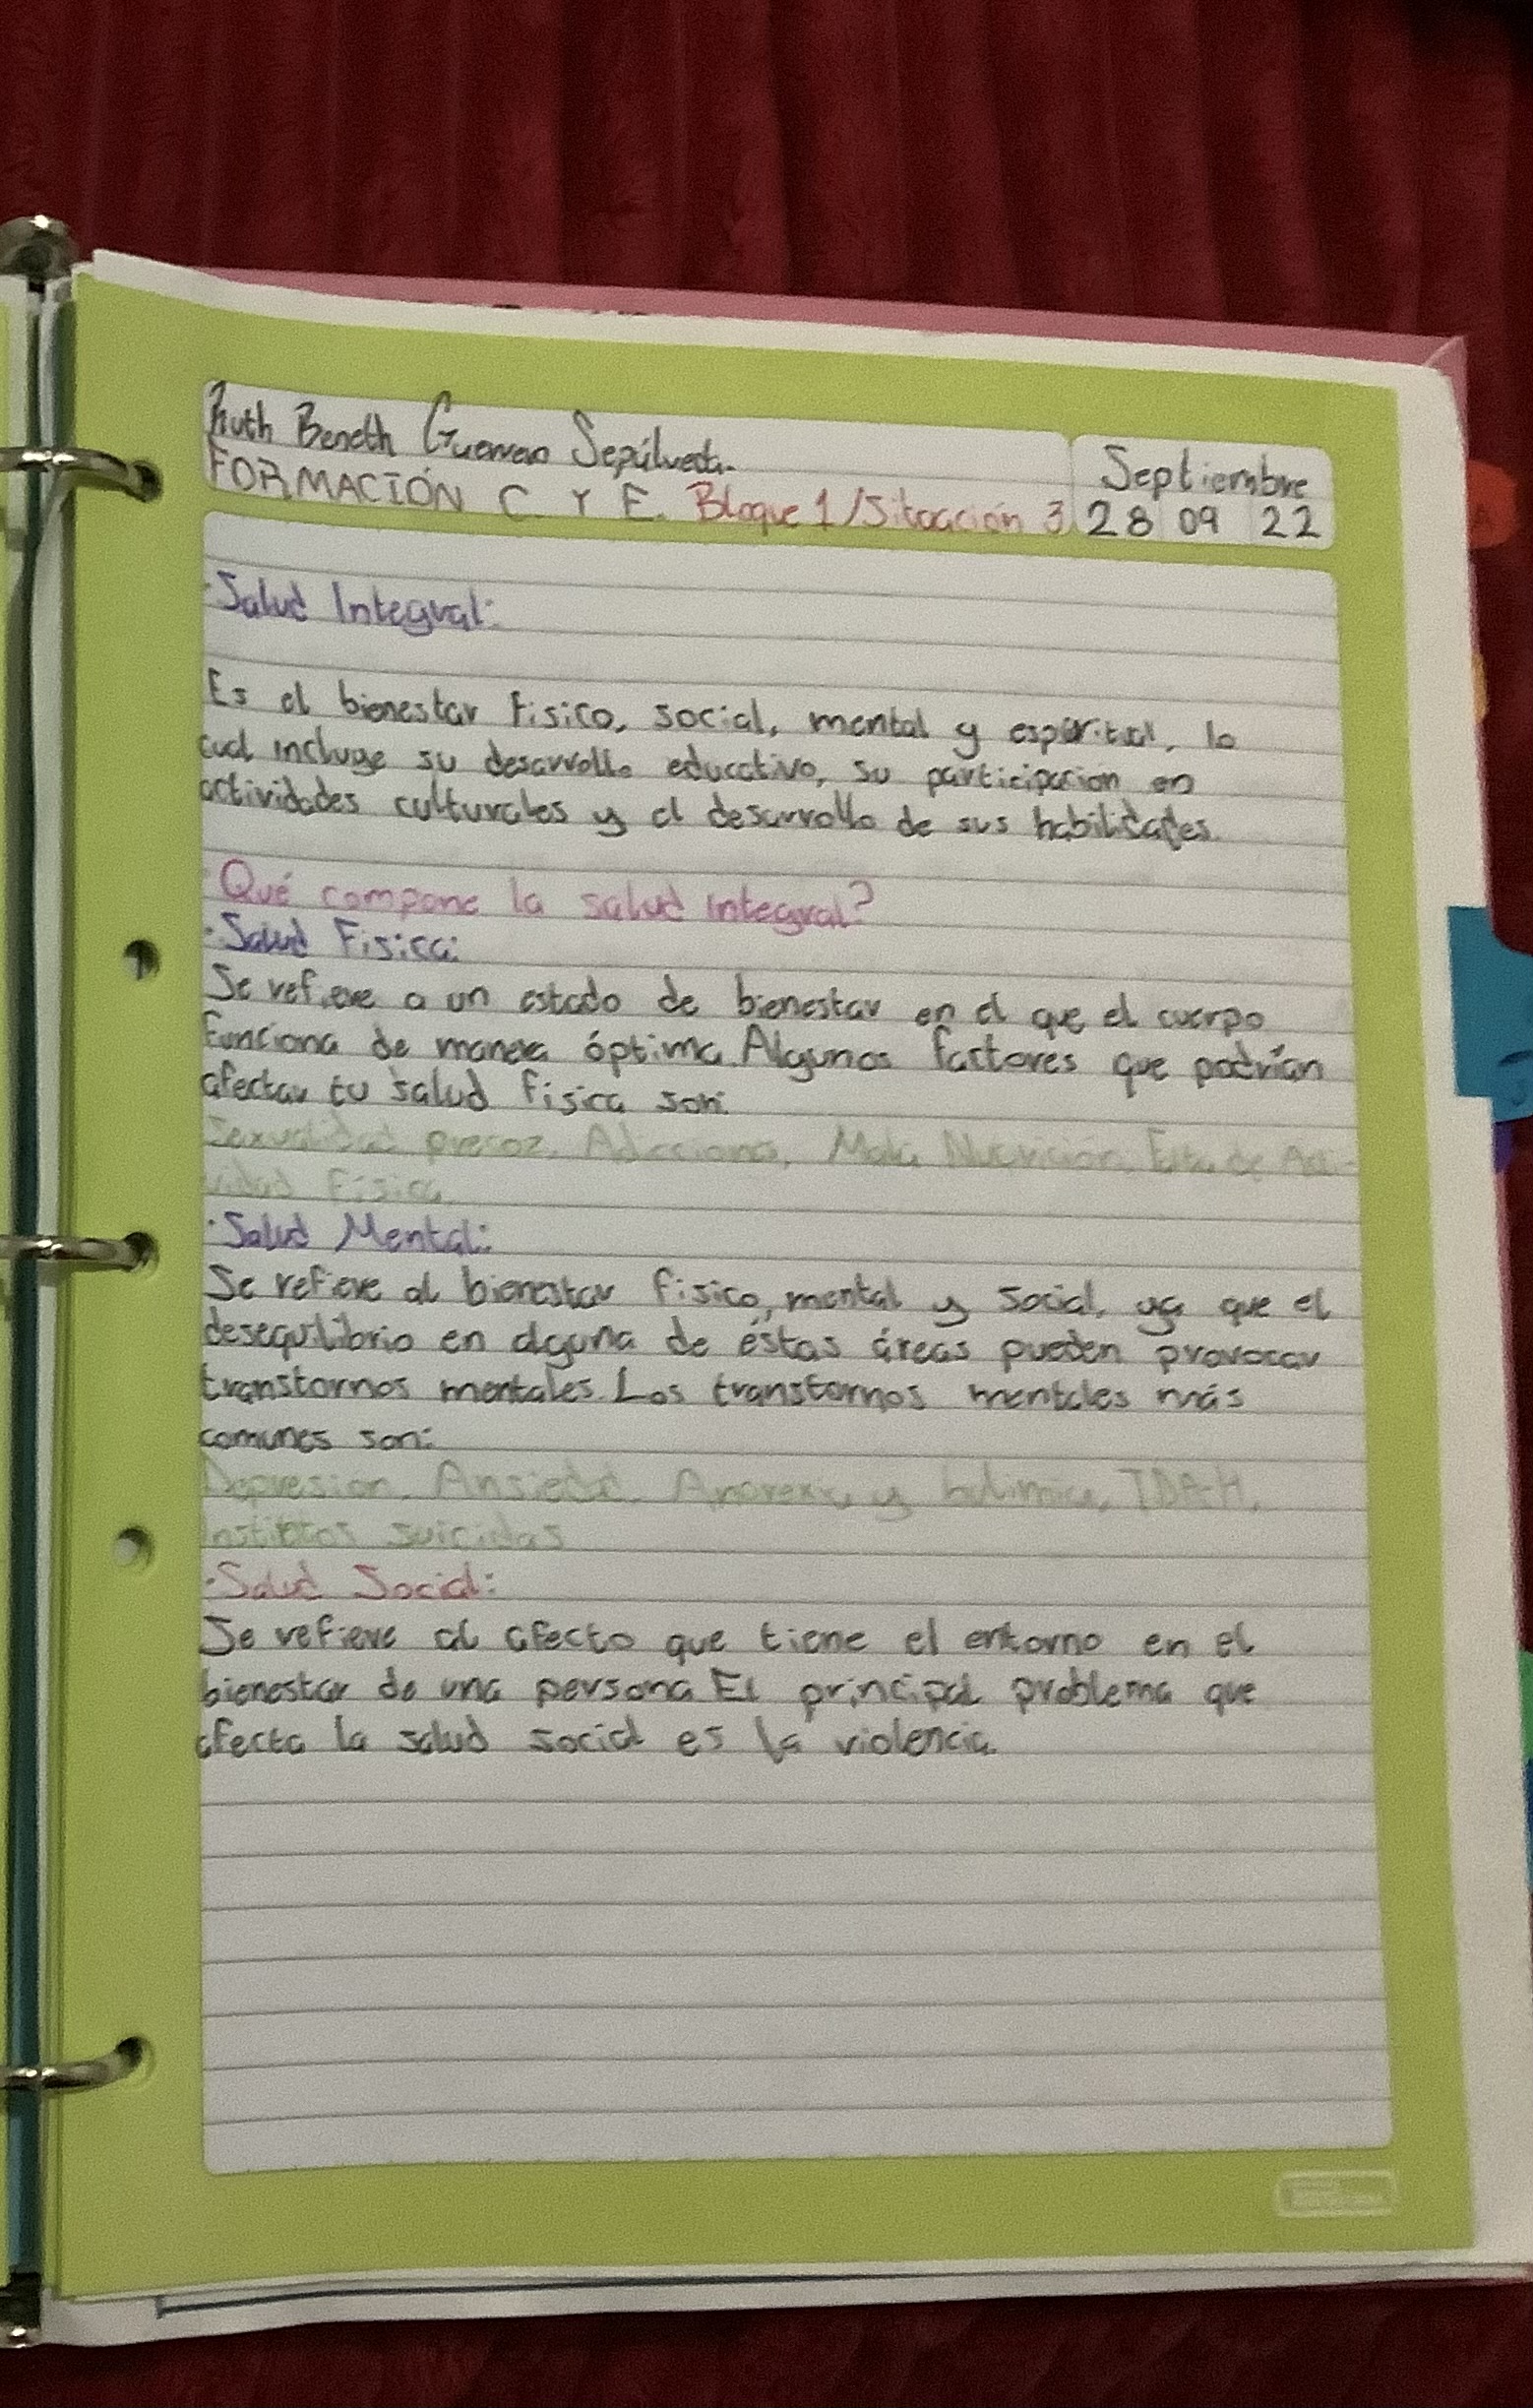 Ruth Beneth Guerrero Sepúlveda.
FORMACIÓN C. Y E. Bloque 1/Situación 3
Septiembre
28 09 22
·Salud Integral:
Es el bienestar físico, social, mental y espiritual, lo
cual incluye su desarrollo educativo, su participación en
actividades culturales y el desarrollo de sus habilidades.
·Qué compone la salud integral?
·Salud Física:
Se refiere a un estado de bienestar en el que el cuerpo
funciona de manera óptima. Algunos factores que podrían
afectar tu salud física son:
Sexualidad precoz, Adicciones, Mala Nutrición, Falta de Acti-
vidad Física
·Salud Mental:
Se refiere al bienestar físico, mental y social, ya que el
desequilibrio en alguna de éstas áreas pueden provocar
transtornos mentales. Los transtornos mentales más
comunes son:
Depresión, Ansiedad, Anorexia y bulimia, TDAH,
Instintos suicidas
·Salud Social:
Se refiere al afecto que tiene el entorno en el
bienestar de una persona El principal problema que
afecta la salud social es la violencia.